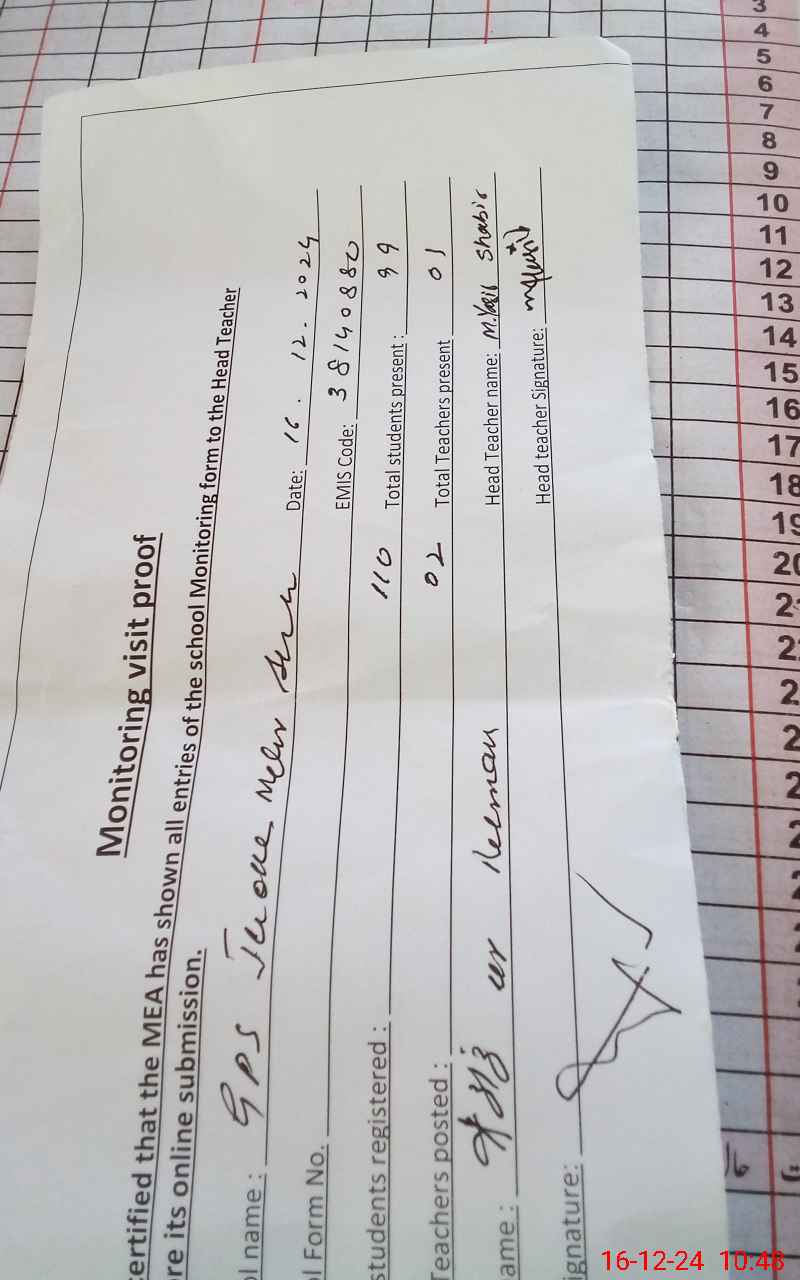 Monitoring visit proof
ertified that the MEA has shown all entries of the school Monitoring form to the Head Teacher
re its online submission.
ol name : GPS Date: 16. 12. 2024
ol Form No. EMIS Code: 38140880
students registered : 110 Total students present : 99
Teachers posted : 02 Total Teachers present 01
ame : ur Rehman Head Teacher name: M. Yasir Shabir
ignature: Head teacher Signature:
3
4
5
6
7
8
9
10
11
12
13
14
15
16
17
18
19
20
16-12-24 10:48